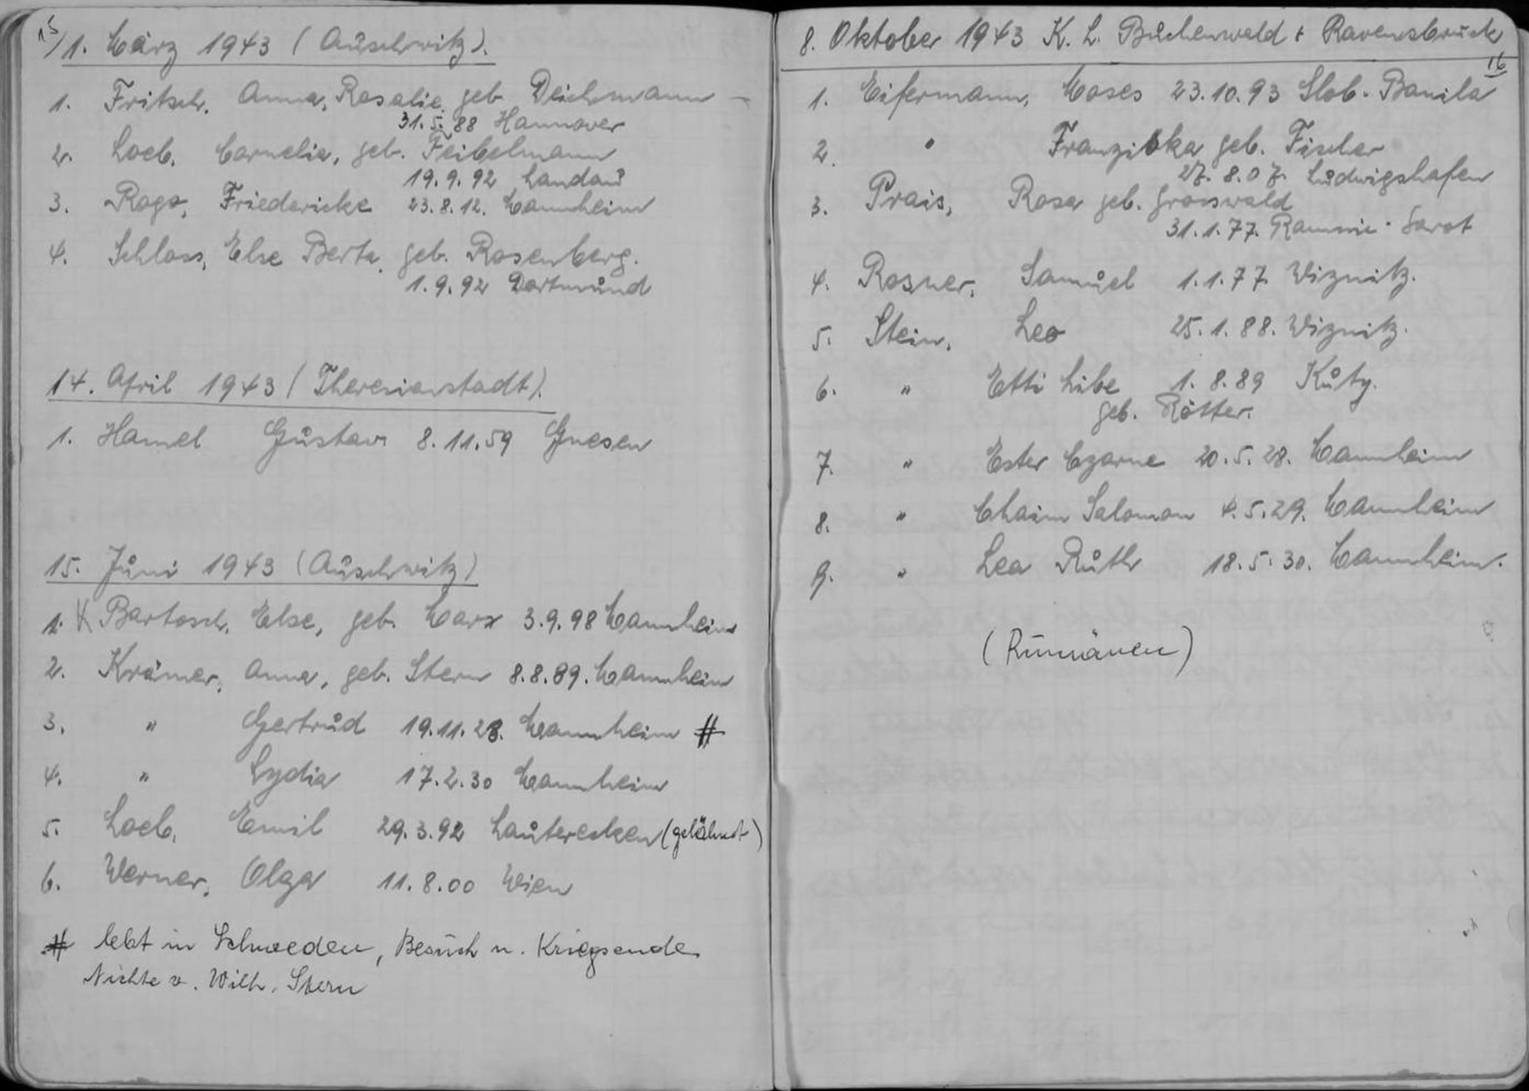 15/
1. März 1943 (Auschwitz).
1. Fritsch, Anna, Rosalie geb. Deichmann —
31.5.88 Hannover
2. Loeb, Cornelia, geb. Feibelmann
19.9.92 Landau
3. Rogo, Friedericke 23.8.12. Mannheim
4. Schloss, Else Berta, geb. Rosenberg.
1.9.92 Dortmund
14. April 1943 (Theresienstadt).
1. Hamel Gustav 8.11.59 Gnesen
15. Juni 1943 (Auschwitz)
1. Bartosch, Else, geb. Marx 3.9.98 Mannheim
2. Krämer, Anna, geb. Stern 8.8.89. Mannheim
3. " Gertrud 19.11.28. Mannheim #
4. " Lydia 17.2.30 Mannheim
5. Loeb, Emil 29.3.92 Lauterecken (gelähmt)
6. Werner, Olga 11.8.00 Wien
# lebt in Schweden, Besuch n. Kriegsende
Nichte v. Wilh. Stern
8. Oktober 1943 K. L. Buchenwald + Ravensbrück
16
1. Eifermann, Moses 23.10.93 Slob. Banila
2. " Franziska geb. Fischer
27.8.07. Ludwigshafen
3. Prais, Rosa geb. Groswald
31.1.77.
4. Rosner, Samuel 1.1.77 Wiznitz.
5. Stein, Leo 25.1.88. Wiznitz.
6. " Etti Libe 1.8.89 Kuty.
geb. Rotter.
7. " Ester Czarne 20.5.28. Mannheim
8. " Chaim Salomon 4.5.29. Mannheim
9. " Lea Ruth 18.5.30. Mannheim.
(Rumänen)